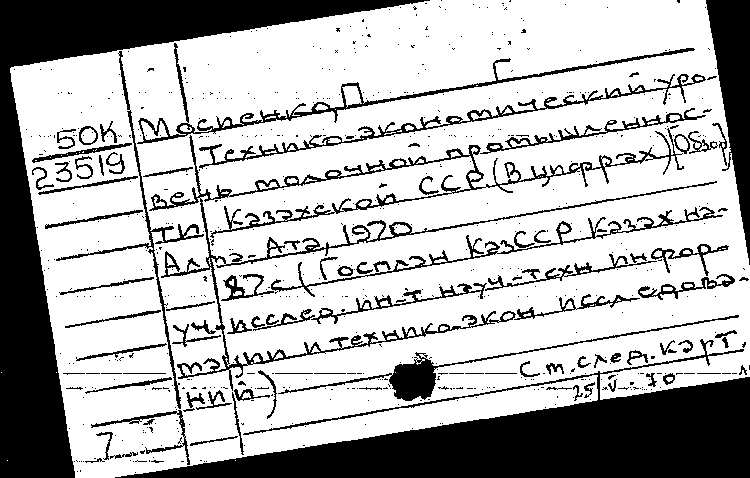 50К
23519
Моспенко, П. Г.
Технико-экономический уро-
вень молочной промышленнос-
ти Казахской ССР. (В цифрах) [Обзор]
Алма-Ата, 1970.
87с (Госплан КазССР Казах на-
уч.-исслед. ин-т науч.-техн информ-
мации и технико-экон. исследова-
ний)
См. след. карт.
25/V-70
7